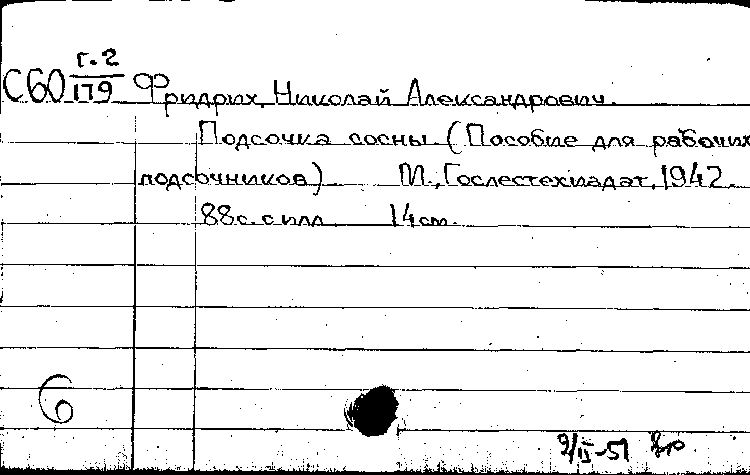 г. 2
С60 179 Фридрих, Николай Александрович.
Подсочка сосны. (Пособие для рабочих
подсочников) М., Гослестехиздат, 1942.
88с. с илл. 14см.
6
9/II-51